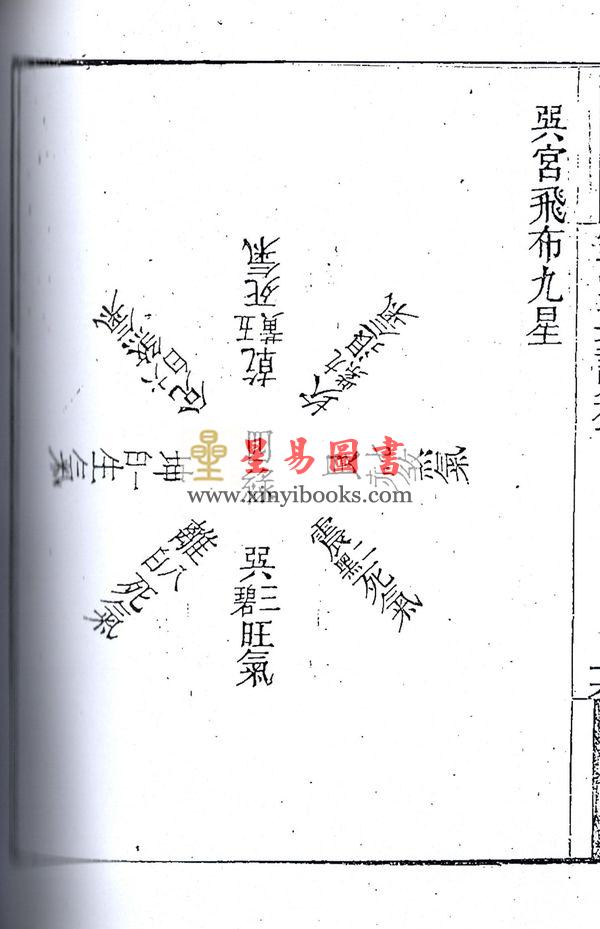 巽宮飛布九星
乾五黃死氣
坎九紫退氣
兌六白煞氣
坤一白生氣
星易圖書
www.xinyibooks.com
煞氣
離八白死氣
巽三碧旺氣
震二黑死氣